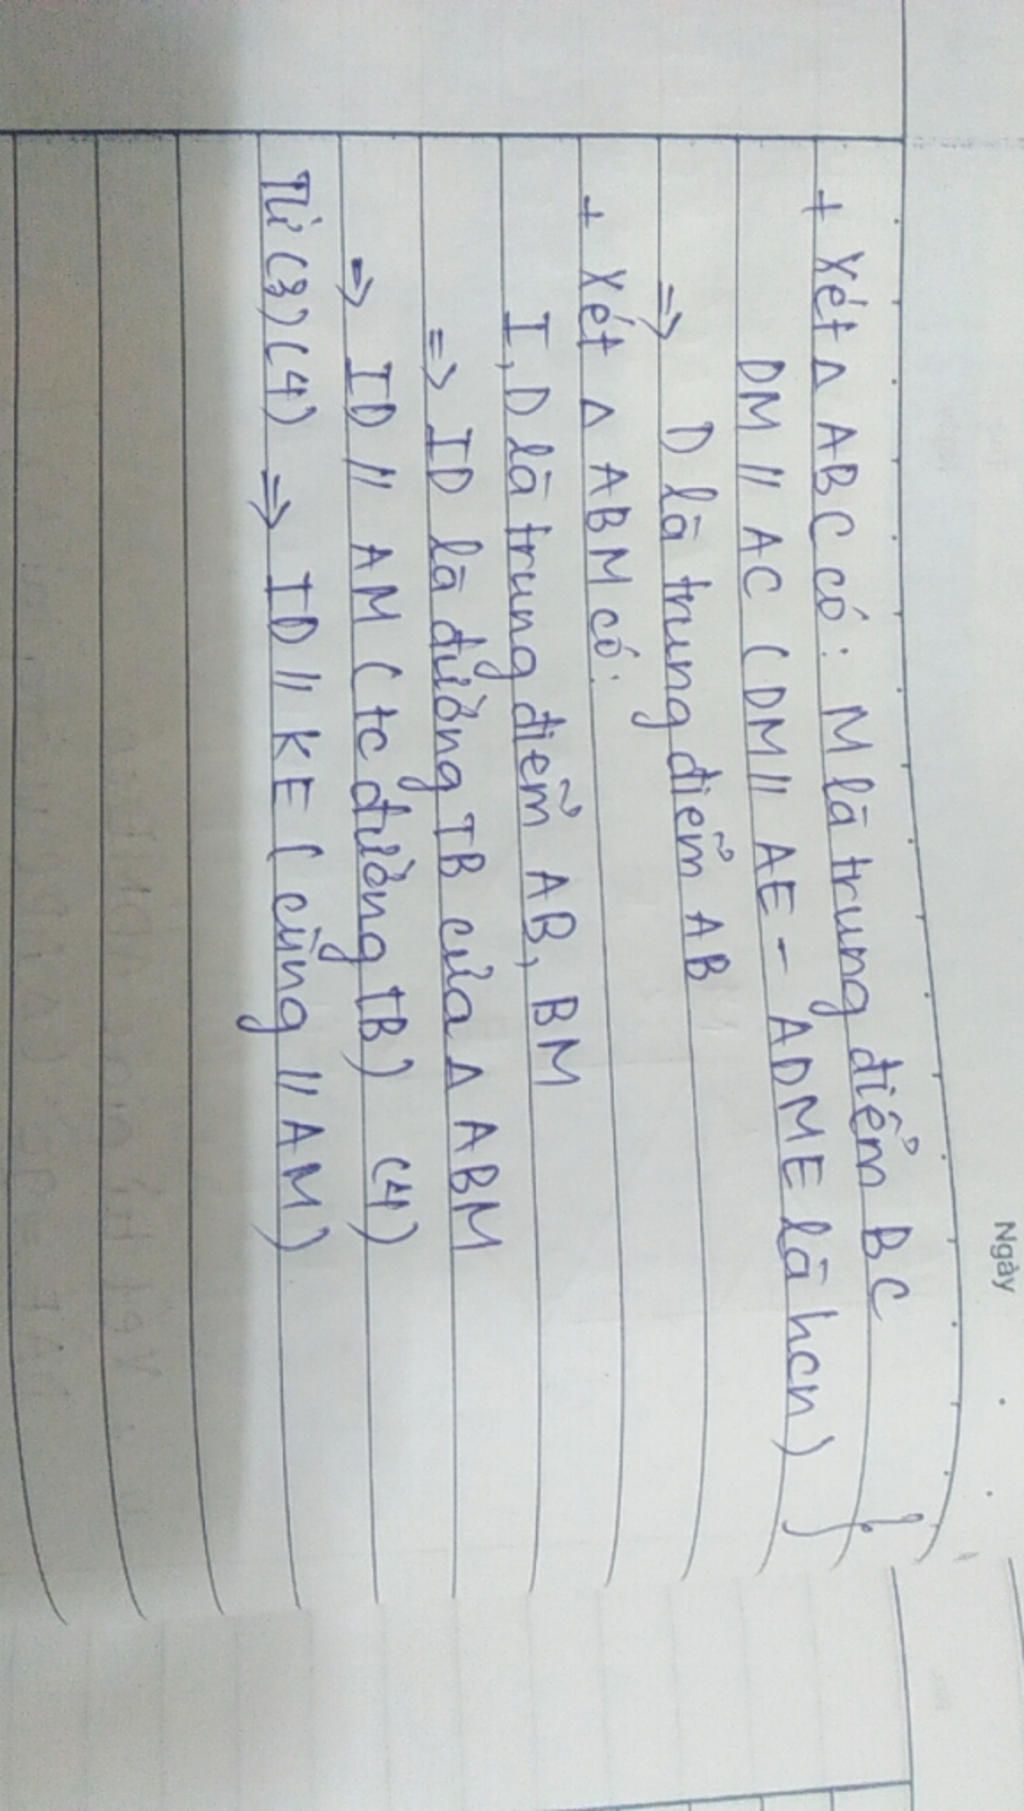 Ngày
+ Xét Δ ABC có: M là trung điểm BC
DM // AC (DM // AE - ADME là hcn) }
=> D là trung điểm AB
+ Xét Δ ABM có:
I, D là trung điểm AB, BM
=> ID là đường TB của Δ ABM
=> ID // AM (tc đường TB) (4)
Từ (3) (4) => ID // KE (cùng // AM)